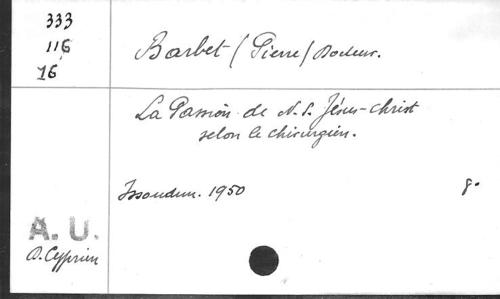 333
116
16
Barbet (Pierre) Docteur.
La Passion de N. S. Jésus-Christ
selon le chirurgien.
Issoudun. 1950 8°
A. U.
D. Cyprien